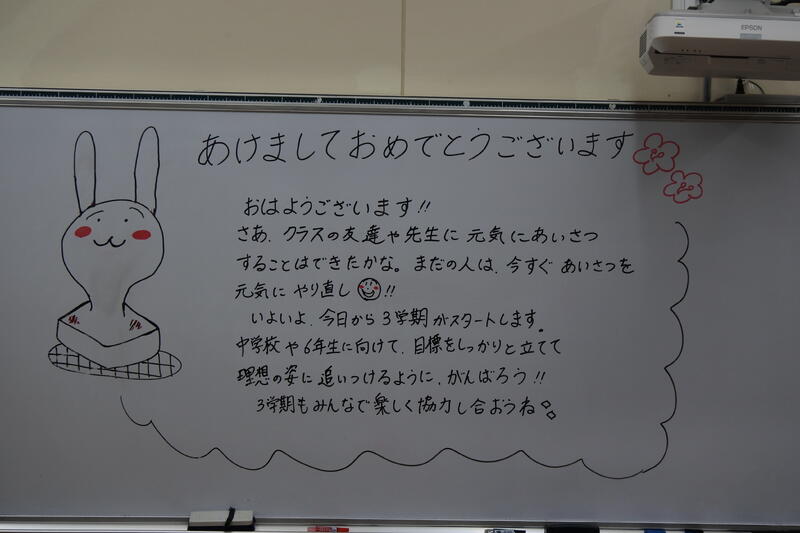 EPSON
あけましておめでとうございます
おはようございます!!
さあ、クラスの友達や先生に元気にあいさつ
することはできたかな。まだの人は、今すぐあいさつを
元気にやり直し!!
いよいよ、今日から3学期がスタートします。
中学校や6年生に向けて、目標をしっかりと立てて
理想の姿に追いつけるように、がんばろう!!
3学期もみんなで楽しく協力し合おうね